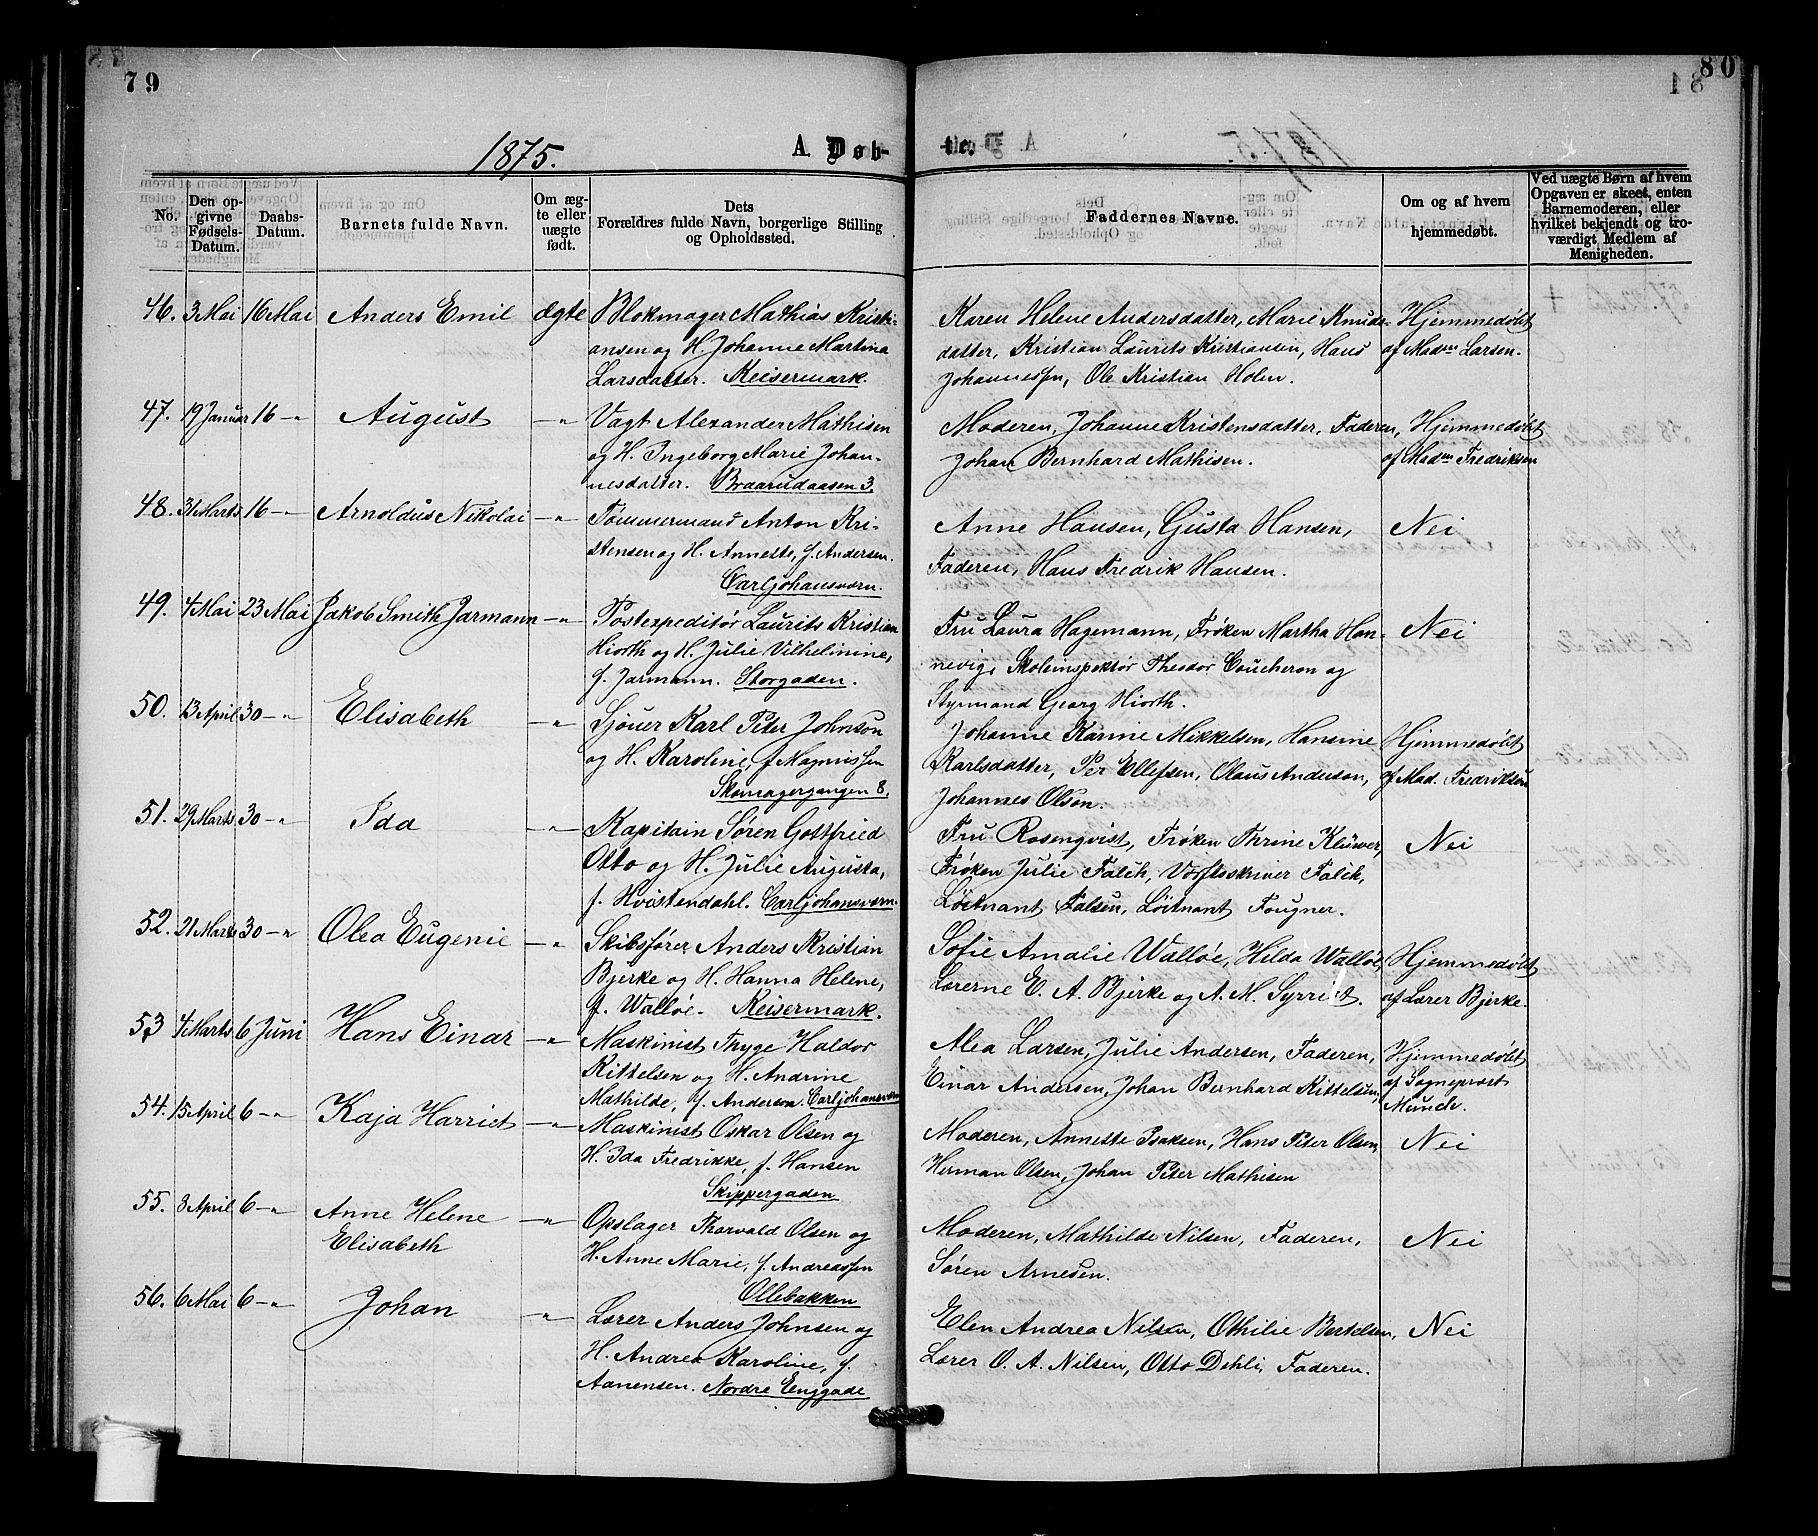 79
80
1875.
A. Døb-
te.
No.
Den op-
givne
Fødsels-
Datum.
Daabs-
Datum.
Barnets fulde Navn.
Om æg-
te eller
uægte
født.
Dets
Forældres fulde Navn, borgerlige Stilling
og Opholdssted.
Faddernes Navne.
Om og af hvem
hjemmedøbt.
Ved uægte Børn af hvem
Opgaven er skeet, enten
Barnemoderen, eller
hvilket bekjendt og tro-
værdigt Medlem af
Menigheden.
46. 3 Mai 16 Mai Anders Emil ægte Blokmager Mathias Kristi-
ansen og H. Johanne Martina
Larsdatter. Keisermark.
Karen Helene Andersdatter, Marie Knuds-
datter, Kristian Laurits Kristiansen, Hans
Johannessen, Ole Kristian Holen.
Hjemmedøbt
af Madm Larsen.
47. 19 Januar 16 -"- August -"- Vagt Alexander Mathisen
og H. Ingeborg Marie Johan-
nesdatter. Braarudaasen 3.
Moderen, Johanne Kristensdatter, Faderen,
Johan Bernhard Mathisen.
Hjemmedøbt
af Madm Fredriksen
48. 31 Marts 16 -"- Arnoldus Nikolai -"- Tømmermand Anton Kri-
stensen og H. Annette, f. Andersen.
Carljohansværn.
Anne Hansen, Gusta Hansen,
Faderen, Hans Fredrik Hansen.
Nei
49. 4 Mai 23 Mai Jakob Smith Jarmann -"- Postexpeditør Laurits Kristian
Hiorth og H. Julie Vilhelmine,
f. Jarmann. Storgaden.
Fru Laura Hagemann, Frøken Martha Han-
nevig, Skoleinspektør Theodor Coucheron og
Styrmand Georg Hiorth.
Nei
50. 13 April 30 -"- Elisabeth -"- Sjouer Karl Peter Johnson
og H. Karoline, f. Magnussen
Skomagergangen 8.
Johanne Karine Mikkelsen, Hansine
Karlsdatter, Per Ellefsen, Olaus Anderson,
Johannes Olsen.
Hjemmedøbt
af Mad. Fredriksen
51. 29 Marts 30 -"- Ida -"- Kapitain Søren Gottfried
Otto og H. Julie Augusta,
f. Hvistendahl. Carljohansværn.
Fru Rosenqvist, Frøken Thrine Klüwer,
Frøken Julie Falch, Værftsskriver Falch,
Løitnant Falsen, Løitnant Fougner.
Nei
52. 21 Marts 30 -"- Olea Eugenie -"- Skibsfører Anders Kristian
Bjerke og H. Hanna Helene,
f. Walløe. Keisermark.
Sofie Amalie Walløe, Hilda Walløe,
Lærerne E. A. Bjerke og A. M. Syrrist.
Hjemmedøbt
af Lærer Bjerke.
53 4 Marts 6 Juni Hans Einar -"- Maskinist Thyge Haldor
Kittelsen og H. Andrine
Mathilde, f. Anderson. Carljohansværn
Alea Larsen, Julie Andersen, Faderen,
Einar Andersen, Johan Bernhard Kittelsen,
Hjemmedøbt
af Sognepræst
Munch.
54. 15 April 6 -"- Kaja Harriet -"- Maskinist Oskar Olsen og
H. Ida Fredrikke, f. Hansen
Skippergaden
Moderen, Annette Isaksen, Hans Peter Olsen,
Herman Olsen, Johan Peter Mathisen
Nei
55. 8 April 6 -"- Anne Helene
Elisabeth
-"- Opslager Thorvald Olsen og
H. Anne Marie, f. Andreassen
Ollebakken
Moderen, Mathilde Nilsen, Faderen,
Søren Arnesen.
Nei
56. 6 Mai 6 -"- Johan -"- Lærer Anders Johnsen og
H. Andrea Karoline, f.
Aanensen. Nordre Enggade
Elen Andrea Nilsen, Othilie Bertelsen,
Lærer O. A. Nilsen, Otto Dehli, Faderen.
Nei